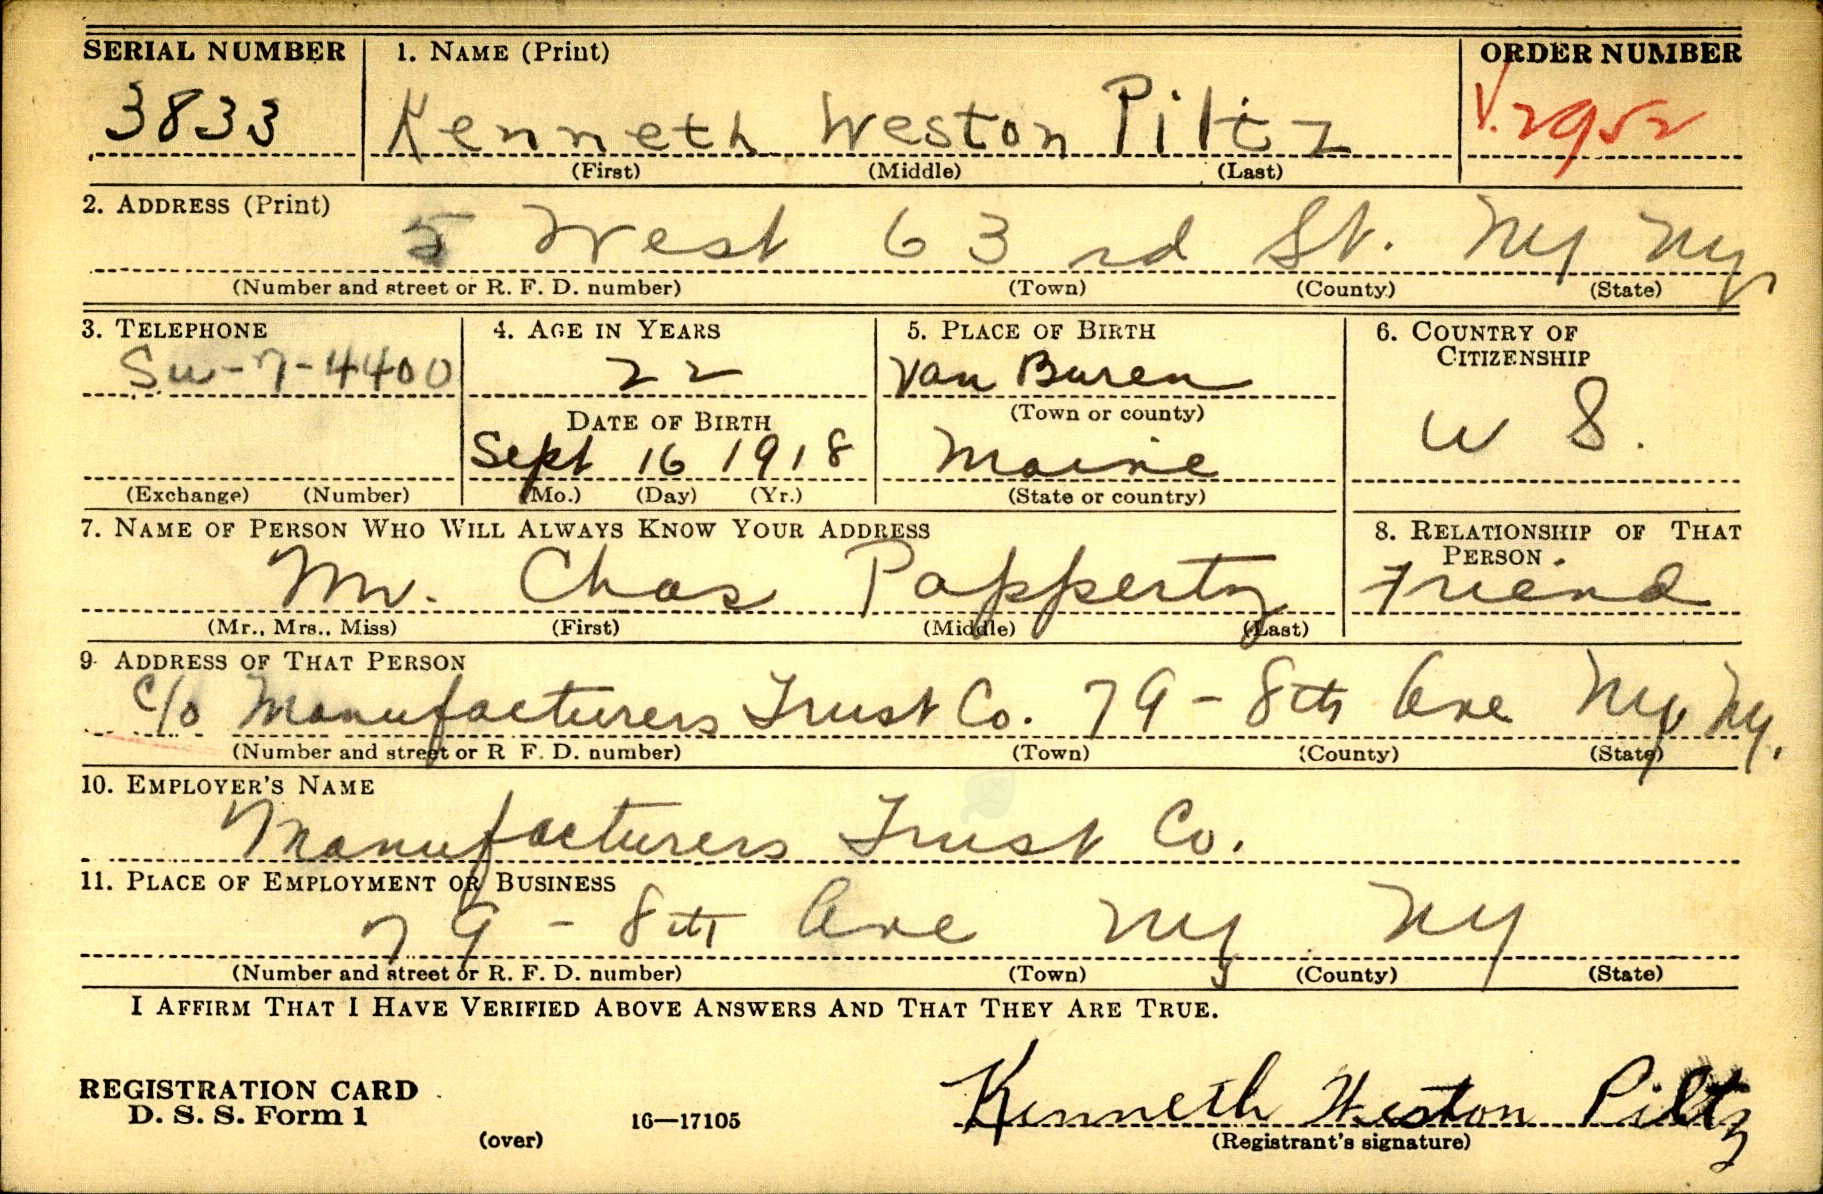 SERIAL NUMBER 1. NAME (Print) ORDER NUMBER
3833 Kenneth Weston Piltz V.2952
(First) (Middle) (Last)
2. ADDRESS (Print)
5 West 63 rd St. NY NY
(Number and street or R. F. D. number) (Town) (County) (State)
3. TELEPHONE 4. AGE IN YEARS 5. PLACE OF BIRTH 6. COUNTRY OF CITIZENSHIP
Su-7-4400 22 Van Buren
DATE OF BIRTH (Town or county) U S.
Sept 16 1918 Maine
(Exchange) (Number) (Mo.) (Day) (Yr.) (State or country)
7. NAME OF PERSON WHO WILL ALWAYS KNOW YOUR ADDRESS 8. RELATIONSHIP OF THAT PERSON
Mr. Chas Pappertz Friend
(Mr., Mrs., Miss) (First) (Middle) (Last)
9. ADDRESS OF THAT PERSON
c/o Manufacturers Trust Co. 79 - 8th Ave NY, NY.
(Number and street or R F. D. number) (Town) (County) (State)
10. EMPLOYER'S NAME
Manufacturers Trust Co.
11. PLACE OF EMPLOYMENT OR BUSINESS
79 - 8th Ave NY NY
(Number and street or R. F. D. number) (Town) (County) (State)
I AFFIRM THAT I HAVE VERIFIED ABOVE ANSWERS AND THAT THEY ARE TRUE.
REGISTRATION CARD
D. S. S. Form 1
(over) 16—17105 Kenneth Weston Piltz
(Registrant's signature)